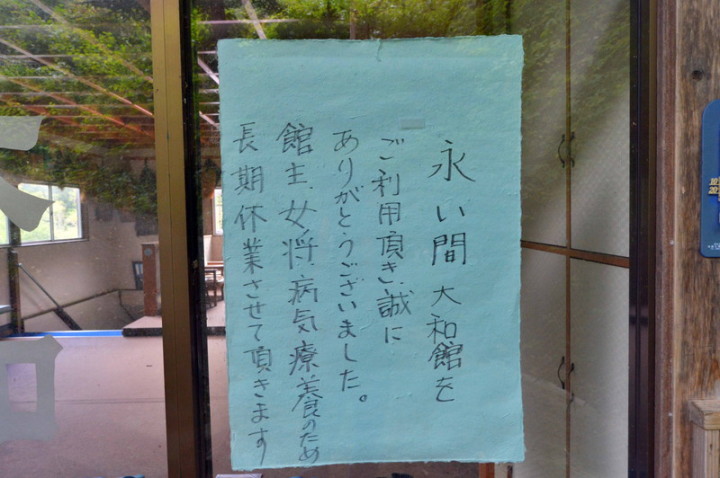 永い間大和館を
ご利用頂き誠に
ありがとうございました。
館主、女将病気療養のため
長期休業させて頂きます